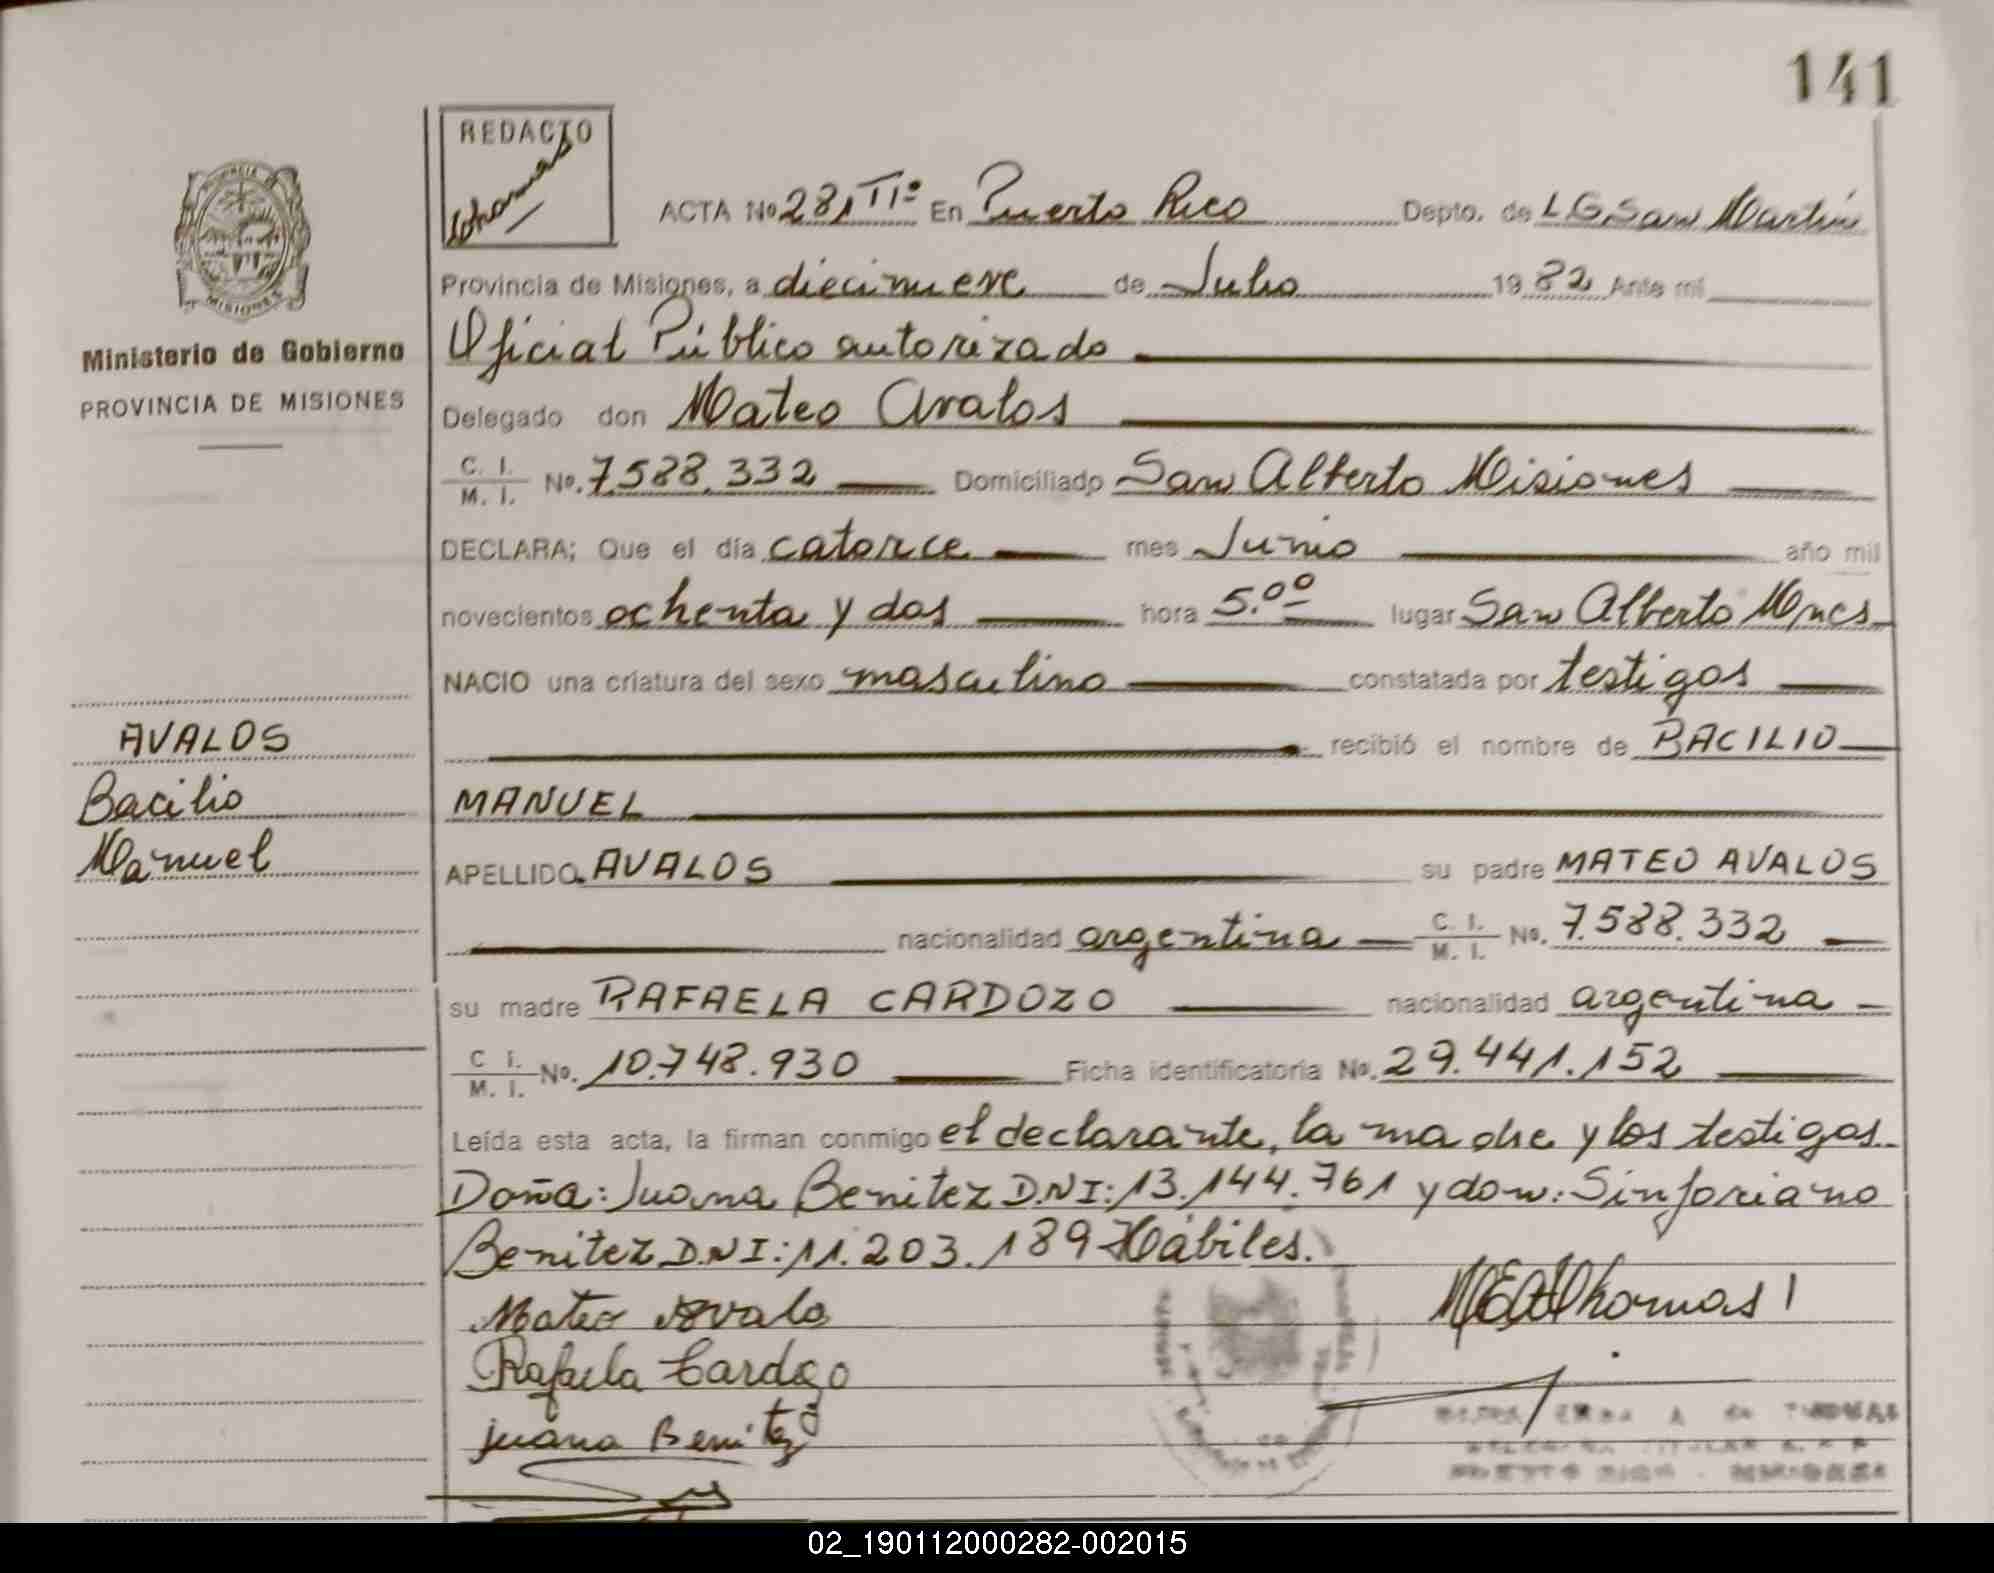 141
REDACTO
Thomas
PROVINCIA DE
MISIONES
Ministerio de Gobierno
PROVINCIA DE MISIONES
ACTA No 281 TIº En Puerto Rico Depto. de L.G. San Martín
Provincia de Misiones, a diecinueve de Julio 1982 Ante mí
Oficial Público autorizado
Delegado don Mateo Avalos
C. I. / M. I. No. 7.588.332 Domiciliado San Alberto Misiones
DECLARA; Que el día catorce mes Junio año mil
novecientos ochenta y dos hora 5.00 lugar San Alberto Mnes
NACIO una criatura del sexo masculino constatada por testigos
recibió el nombre de BACILIO
MANUEL
AVALOS
Bacilio
Manuel
APELLIDO AVALOS su padre MATEO AVALOS
nacionalidad argentina C. I. / M. I. No. 7.588.332
su madre RAFAELA CARDOZO nacionalidad argentina
C I. / M. I. No. 10.748.930 Ficha identificatoria No. 29.441.152
Leída esta acta, la firman conmigo el declarante, la madre y los testigos.
Doña: Juana Benitez D.N.I: 13.144.761 y don: Sinforiano
Benitez D.N.I: 11.203.189 Hábiles.
Mateo Avalo
Rafaela Cardozo
Juana Benitez
Thomas
PUERTO RICO - MISIONES
02_190112000282-002015